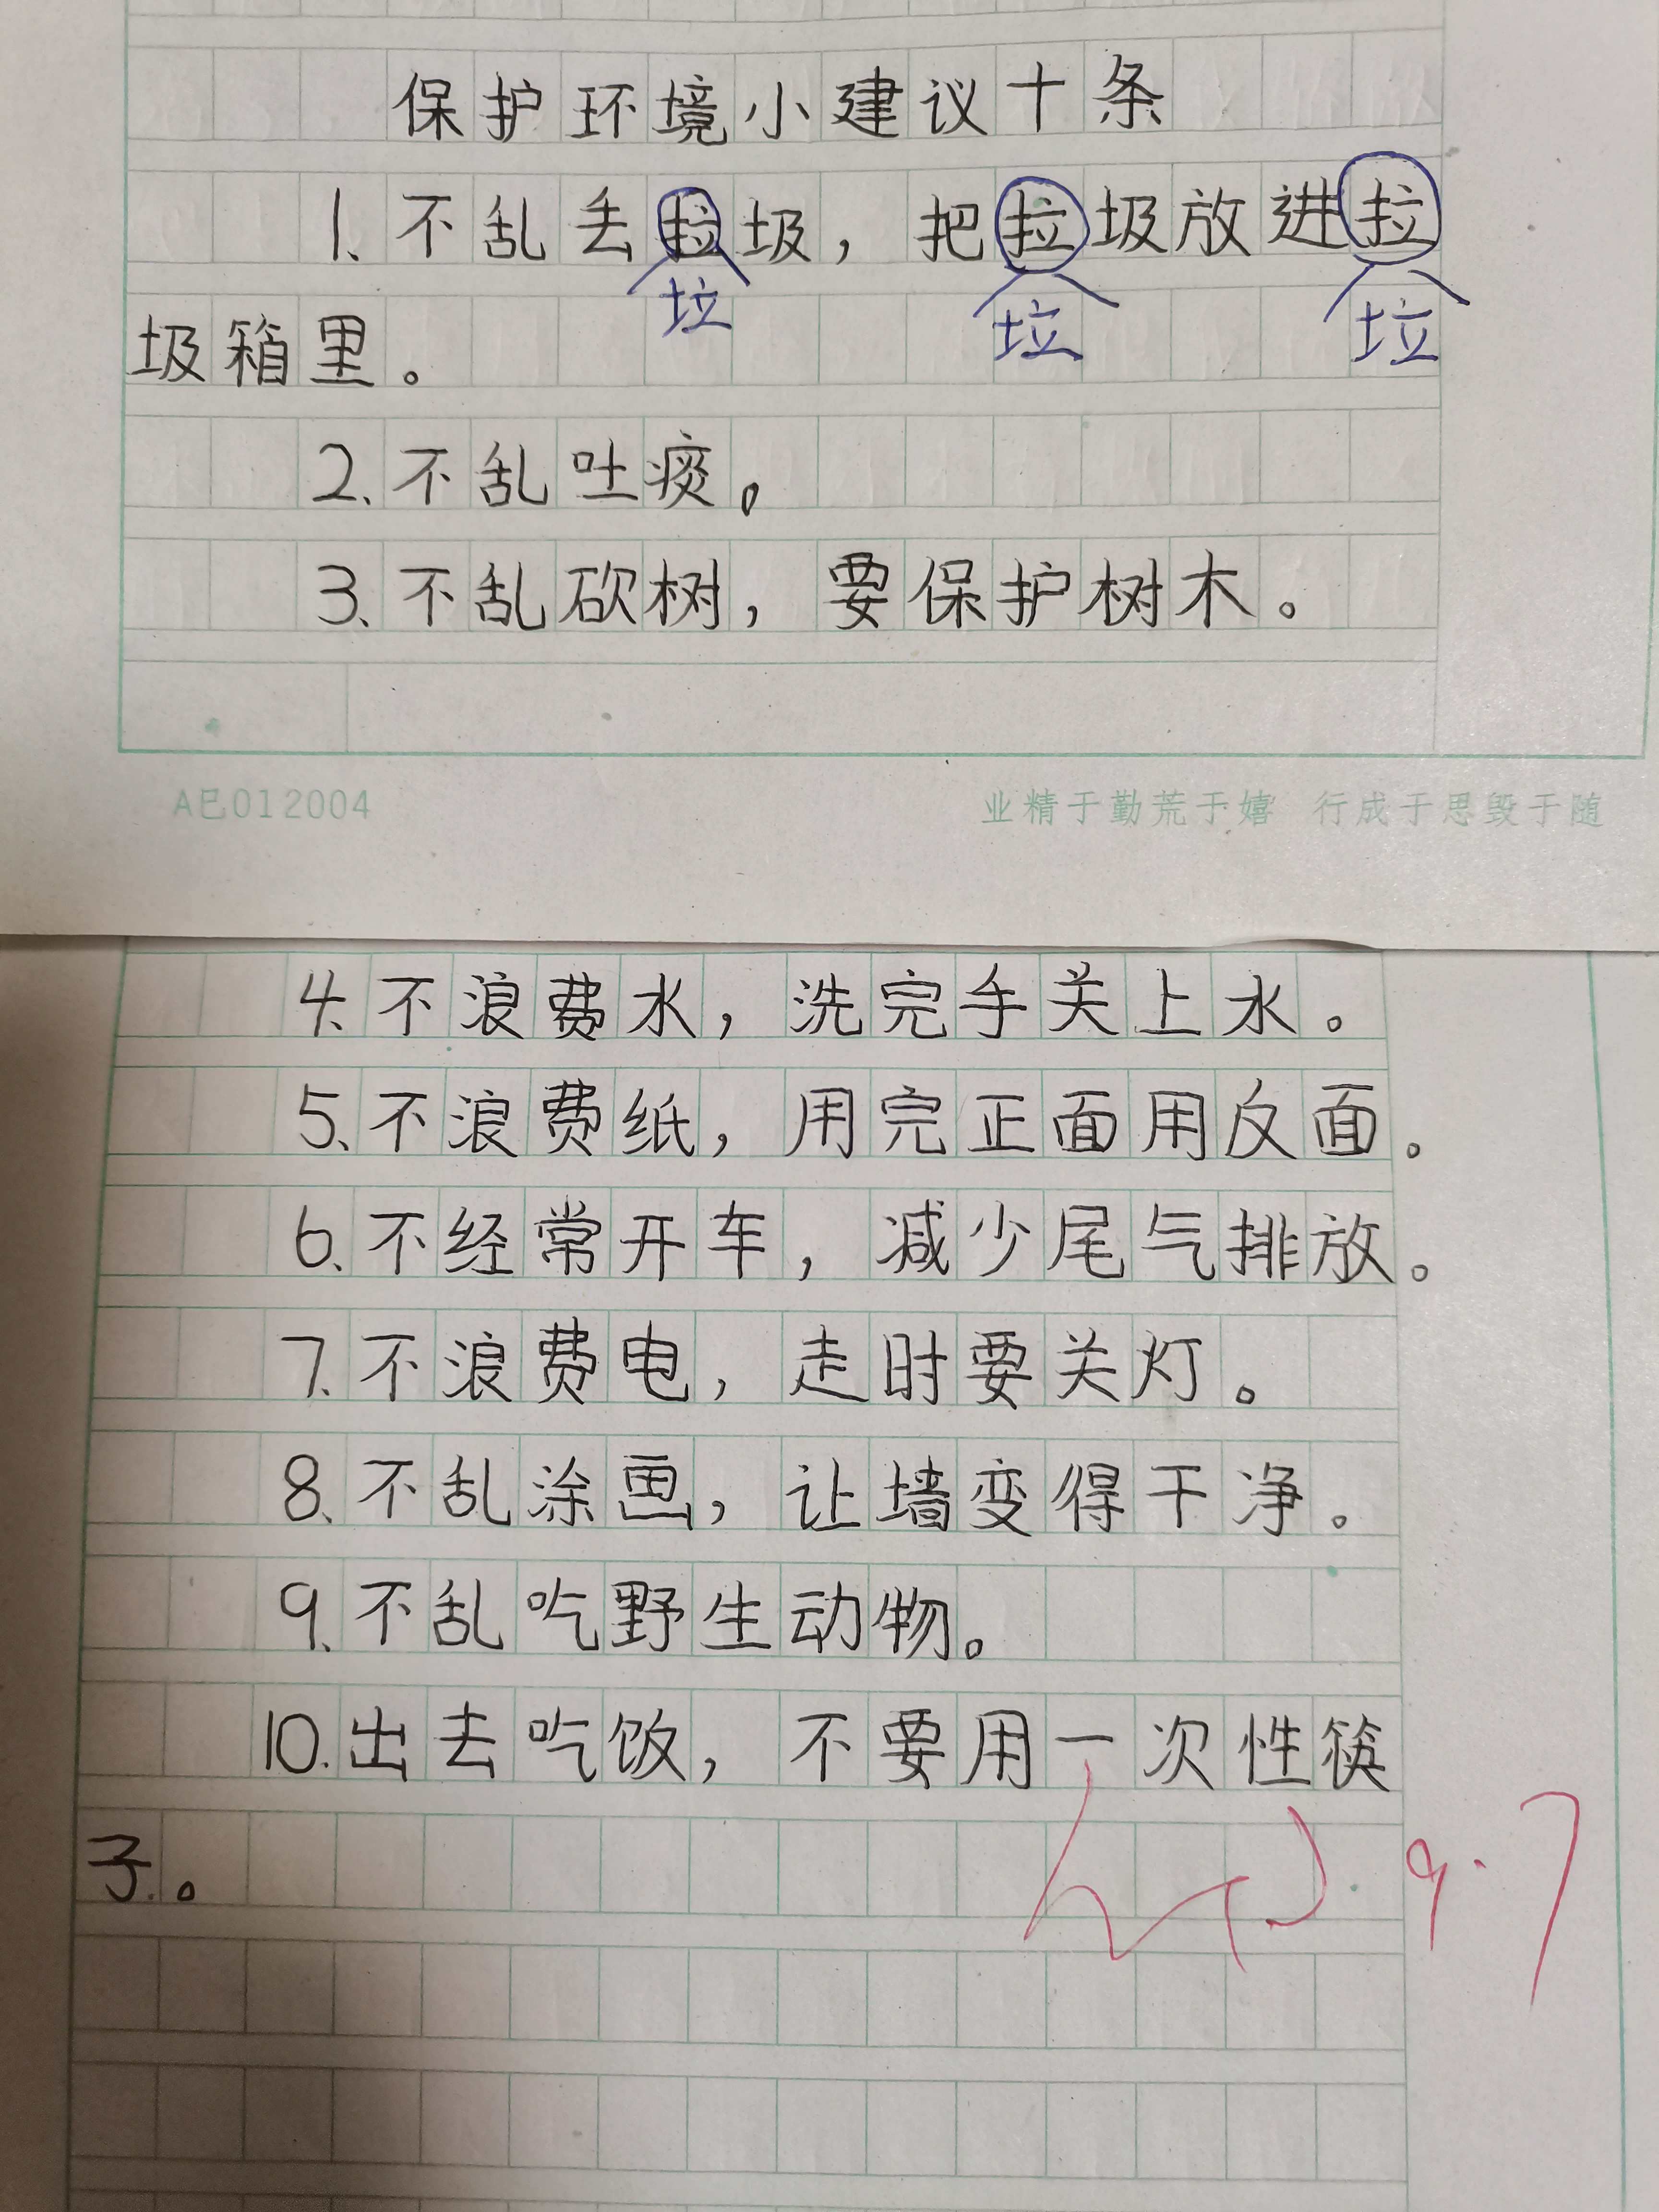 保护环境小建议十条
1、不乱丢拉圾，把拉圾放进拉
垃 垃 垃
圾箱里。
2、不乱吐痰。
3、不乱砍树，要保护树木。
A巳012004 业精于勤荒于嬉 行成于思毁于随
4、不浪费水，洗完手关上水。
5、不浪费纸，用完正面用反面。
6、不经常开车，减少尾气排放。
7、不浪费电，走时要关灯。
8、不乱涂画，让墙变得干净。
9、不乱吃野生动物。
10.出去吃饭，不要用一次性筷
子。
9.7